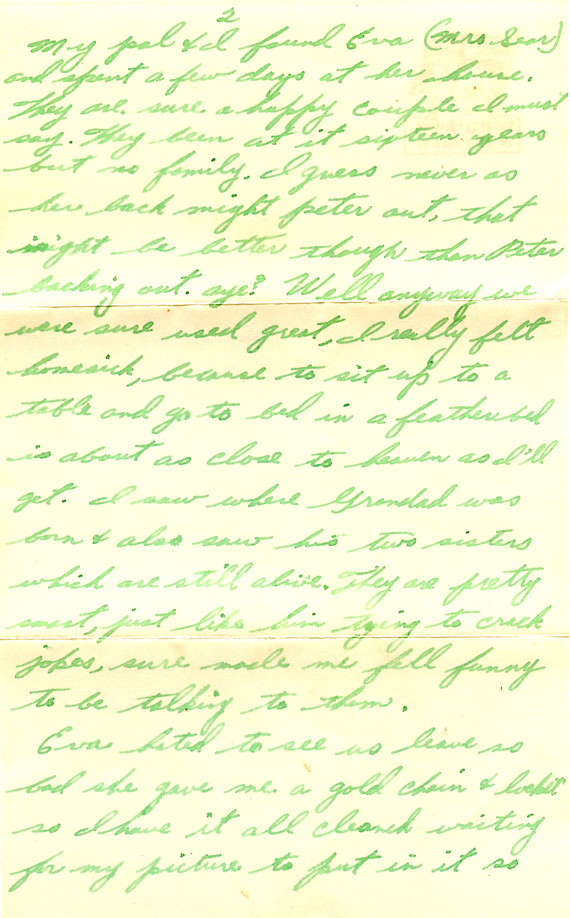 2
My pal & I found Eva (Mrs Sear)
and spent a few days at her house.
They are sure a happy couple I must
say. They been at it sixteen years
but no family. I guess never as
her back might peter out, that
might be better though than Peter
backing out. aye? Well anyway we
were sure used great, I really felt
homesick, because to sit up to a
table and go to bed in a featherbed
is about as close to heaven as I'll
get. I saw where Grandad was
born & also saw his two sisters
which are still alive. They are pretty
smart, just like him trying to crack
jokes, sure made me fell funny
to be talking to them.
Eva hated to see us leave so
bad she gave me a gold chain & locket
so I have it all cleaned waiting
for my picture to put in it so